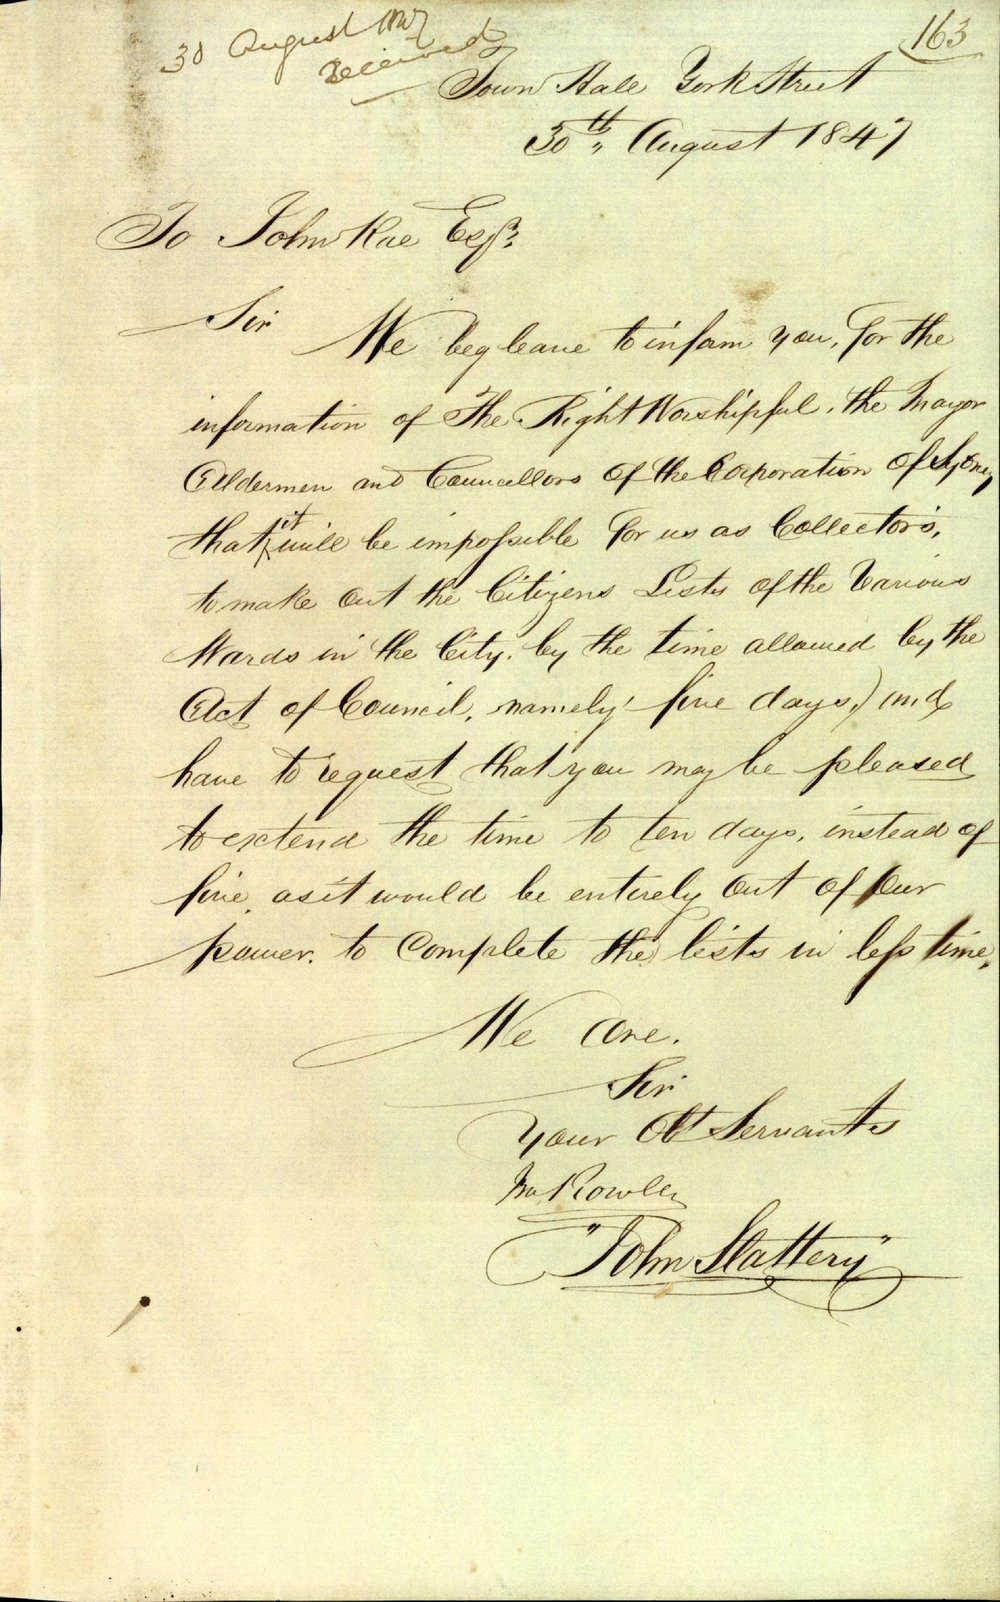 30 August 1847
Received
163
Town Hall York Street
30th August 1847
To John Rae Esqr
Sir We beg leave to inform you, for the
information of The Right Worshipful, the Mayor
Aldermen and Councellors of the Corporation of Sydney
that it will be impossible for us as Collectors,
to make out the Citizens Lists of the Various
Wards in the City, by the time allowed by the
Act of Council, namely five days,) and
have to request that you may be pleased
to extend the time to ten days, instead of
five, as it would be entirely out of our
power, to complete the lists in less time.
We are.
Sir
Your Obt Servants
Rowley
"John Slattery"